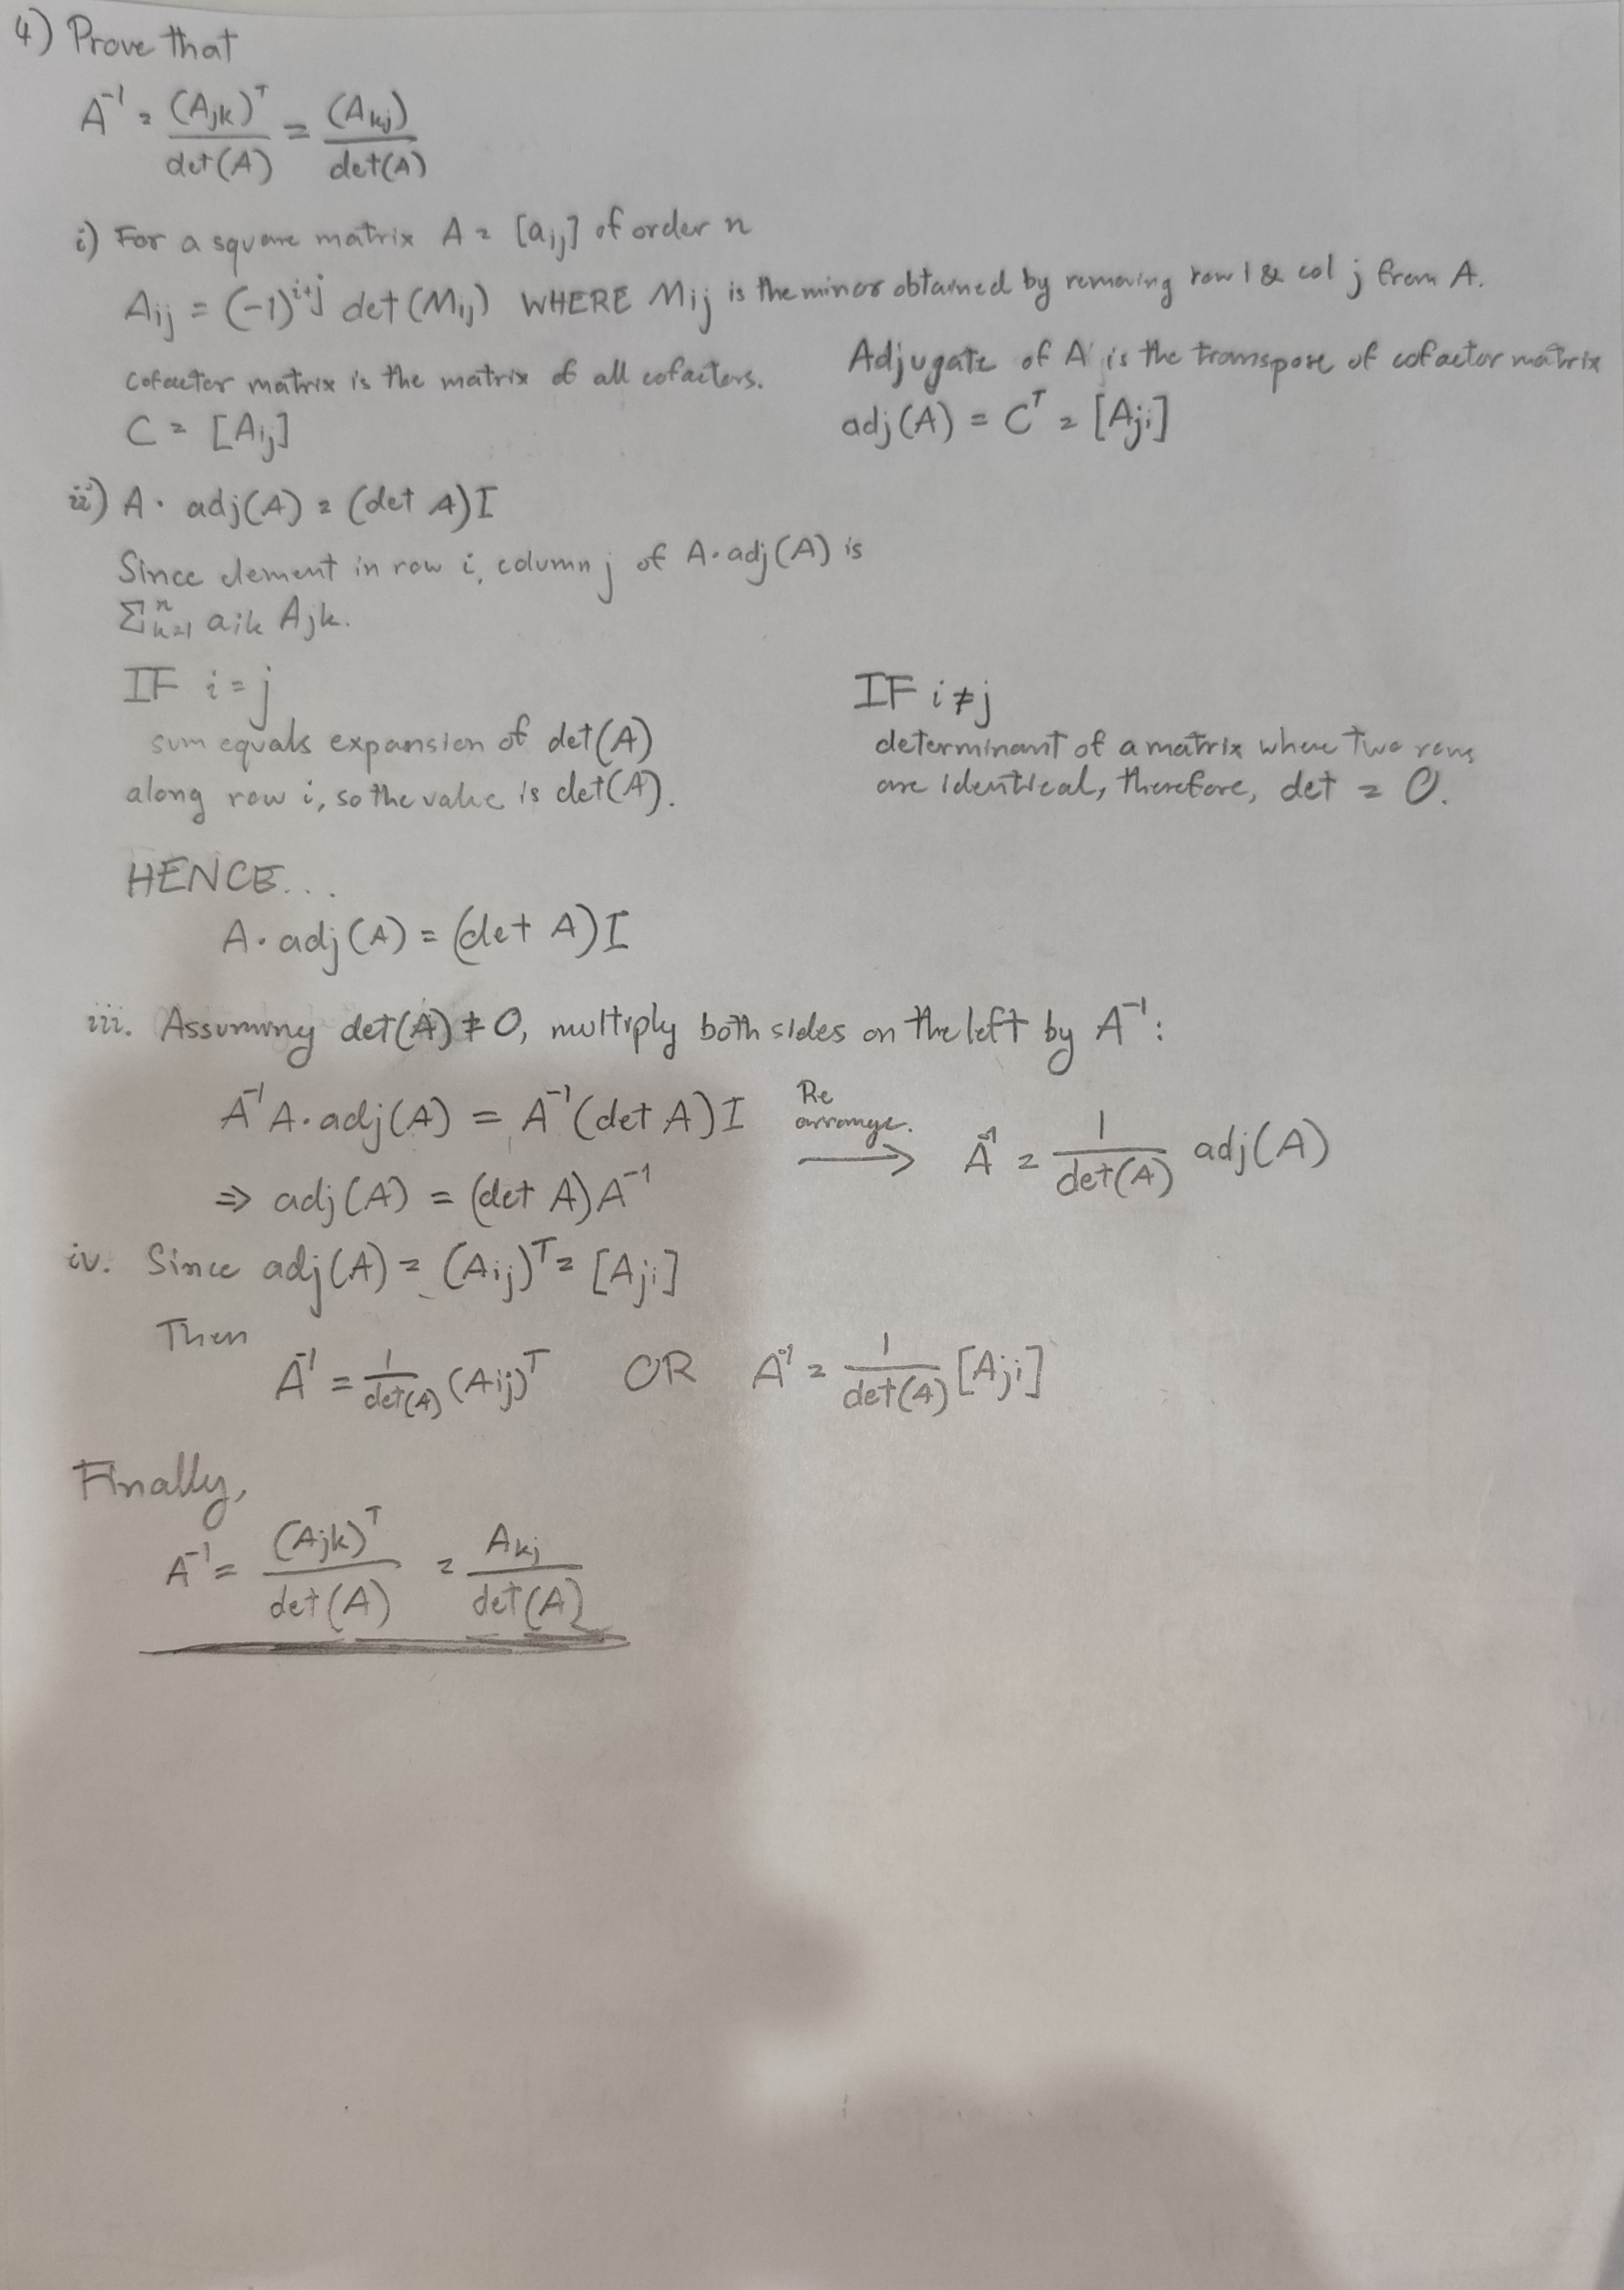 4) Prove that
A⁻¹ = (Ajk)ᵀ / det(A) = (Akj) / det(A)
i) For a square matrix A = [aij] of order n
Aij = (-1)^i+j det(Mij) WHERE Mij is the minor obtained by removing row i & col j from A.
cofactor matrix is the matrix of all cofactors.
C = [Aij]
Adjugate of A is the transpose of cofactor matrix
adj(A) = Cᵀ = [Aji]
ii) A · adj(A) = (det A)I
Since element in row i, column j of A·adj(A) is
Σⁿk=1 aik Ajk.
IF i = j
sum equals expansion of det(A)
along row i, so the value is det(A).
IF i ≠ j
determinant of a matrix where two rows
are identical, therefore, det = 0.
HENCE...
A·adj(A) = (det A)I
iii. Assuming det(A) ≠ 0, multiply both sides on the left by A⁻¹:
A⁻¹A·adj(A) = A⁻¹(det A)I
⇒ adj(A) = (det A)A⁻¹
Re
arrange.
→ A⁻¹ = 1 / det(A) adj(A)
iv. Since adj(A) = (Aij)ᵀ = [Aji]
Then
A⁻¹ = 1 / det(A) (Aij)ᵀ OR A⁻¹ = 1 / det(A) [Aji]
Finally,
A⁻¹ = (Ajk)ᵀ / det(A) = Akj / det(A)